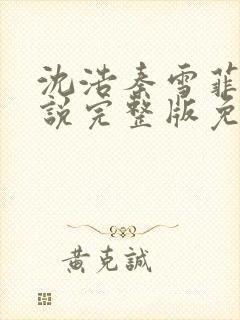 沈浩秦雪菲
說完整版免
黃克誠